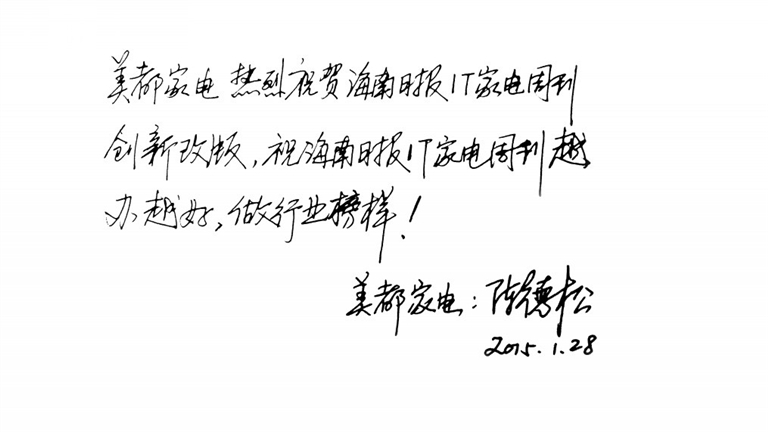 美都家电热烈祝贺海南日报IT家电周刊
创新改版，祝海南日报IT家电周刊越
办越好，做行业榜样！
美都家电：陈德松
2015.1.28